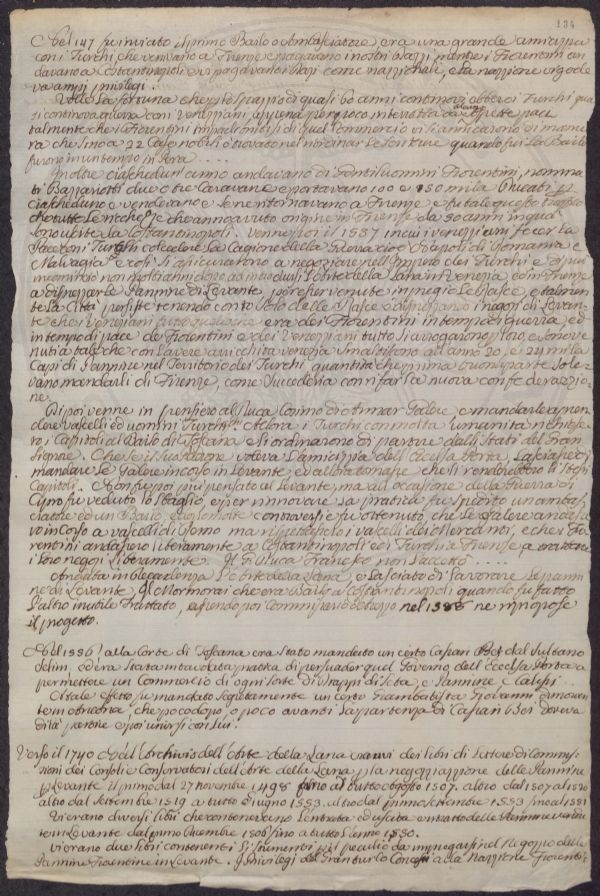 134
Nel 147 fu inviato il primo Bailo o Ambasciatore, era una grande amicizia
con i Turchi che venivano a Firenze e pagavano i nostri dazzi, mentre i Fiorentini an
davano a Costantinopoli e vi pagavano i Dazi come nazzionali, e la nazzione vi gode
va ampi privilegi.
Volle la fortuna che per lo spazzio di quasi 60 anni continovi ebbero i Turchi qua
si continova guerra con i Veneziani, appena per poco interrotta da
talmente che i Fiorentini impadronitosi di quel Commercio vi si annicarono di manie
ra che sino a 22 Case nobili ò trovato nel riordinar le scritture quando poi la Bailo
furono in un tempo in Pera ....
Inoltre ciaschedun'anno andavano di Gentiluomini Fiorentini, nomina
ti Bazzariotti due o tre Caravane e portavano 100 e 150 mila Ducati p
ciascheduno e vendevano e se ne ritornavano a Firenze e fu tale questo traffico
che tutte le ricchezze che anno avuto origine in Firenze da 80 anni in qua
sono uscite da Costantinopoli. Venne poi il 1537 in cui i veneziani fecer la
Pace con i Turchi col cedere la Cagione della Guerra cioè Napoli di Romania e
Malvagia e così si assicurarono a negoziare nell'Impero dei Turchi e di qui
incominciò non molti anni dopo ad introdursi l'Arte della Lana in Venezia, ed in Firenze
a disprezzarsi le Pannine di Levante perche venute in pregio le Rascie, e talmen
te la Città persiste tenendo conto solo delle Rascie e disprezzano i negozi di Levan
te che i veneziani tutto quello che era dei Fiorentini in tempo di guerra, ed
in tempo di pace de Fiorentini e dei Veneziani tutto si arrogarono a loro, e sono ve
nuti a tale che con l'avere arricchita venezia smaltiscono all'anno 20, e 24 mila
Capi di Pannine nel Territorio dei Turchi quantità che prima buona parte sole
vano mandarli di Firenze, come succederia con il far la nuova confederazzio
ne.
Di poi venne in pensiero al Duca Cosimo di armar Galere e mandarle a pren
dere vascelli ed uomini Turchi. Allora i Turchi con molta umanità restituiro
no i Capitoli al Bailo di Toscana e si ordinarono di partire dalli Stati del Gran
Signore. Che se il suo Padrone voleva l'amicizia dell'Eccelsa Porta, lasciasse di
mandare le Galere in corso in Levante, ed allora tornasse che li renderebbero li stessi
Capitoli. Non fu poi più pensato al Levante, ma all'occasione della Guerra di
Cipro fu veduto lo sbaglio, e per rinnovare la pratica fu spedito un ambas
ciatore ed un Bailo, e dopo molte controversie fu ottenuto, che le Galere andasse
ro in corso a vascelli di Uomo ma rispettassero i vascelli dei Mercanti, e che i Fio
rentini andassero liberamente a Costantinopoli ed i Turchi a Firenze a trattare
i loro negozi liberamente. Il G. Duca Francesco non l'accettò ....
Andata in decadenza l'Arte della Lana, e lasciato di lavorare le panni
ne di Levante, il Mormorai che era Bailo a Costantinopoli quando fu fatto
l'altro inutile Trattato, essendo poi Commissario d'Arezzo nel 1586 ne ripropose
il progetto.
Nel 1556 alla Corte di Toscana era stato mandato un certo Cassan Bei dal Sultano
Selim, ed era stata intavolata pratica di persuader quel Governo dell'Eccelsa Porta a
permettere un Commercio di ogni sorte di Drappi di Seta, e Pannine e Calessi.
A tale effetto fu mandato segretamente un certo Giambatista Giovanni
che poco dopo, o poco avanti la partenza di Cassan Bei doveva
di là partire e poi unirsi con lui.
Verso il 1740 nell'Archivio dell'Arte della Lana erano dei libri di Lettere di Commis
sioni dei Consoli e Conservatori dell'Arte della Lana p la negoziazzione delle Pannine
p Levante il primo dal 27 novembre 1498 fino al tutto agosto 1507. altro dal 1507 al 1520
altro dal settembre 1519 a tutto giugno 1553. altro dal primo settembre 1553 fino al 1581
Vi erano diversi libri che contenevano l'entrata ed uscita e ritratto delle Pannine vendu
te in Levante dal primo Dicembre 1506 fino a tutto l'anno 1550.
Vi erano due libri contenenti gli stromenti p il peculio da impiegarsi nel Negozzio delle
Pannine Fiorentine in Levante. I Privilegi del Gran Turco Concessi alla Nazzione Fiorenti